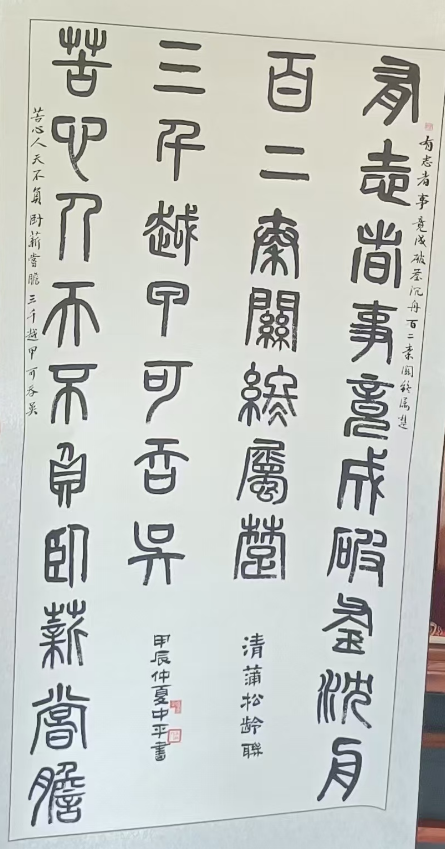 有志者事竟成破釜沈舟
有志者事竟成破釜沉舟百二秦関終屬楚
百二秦關終屬楚
清蒲松齡聯
苦心人天不負臥薪嘗膽
苦心人天不負卧薪嘗膽三千越甲可吞吴
三千越甲可吞吳
甲辰仲夏中平書